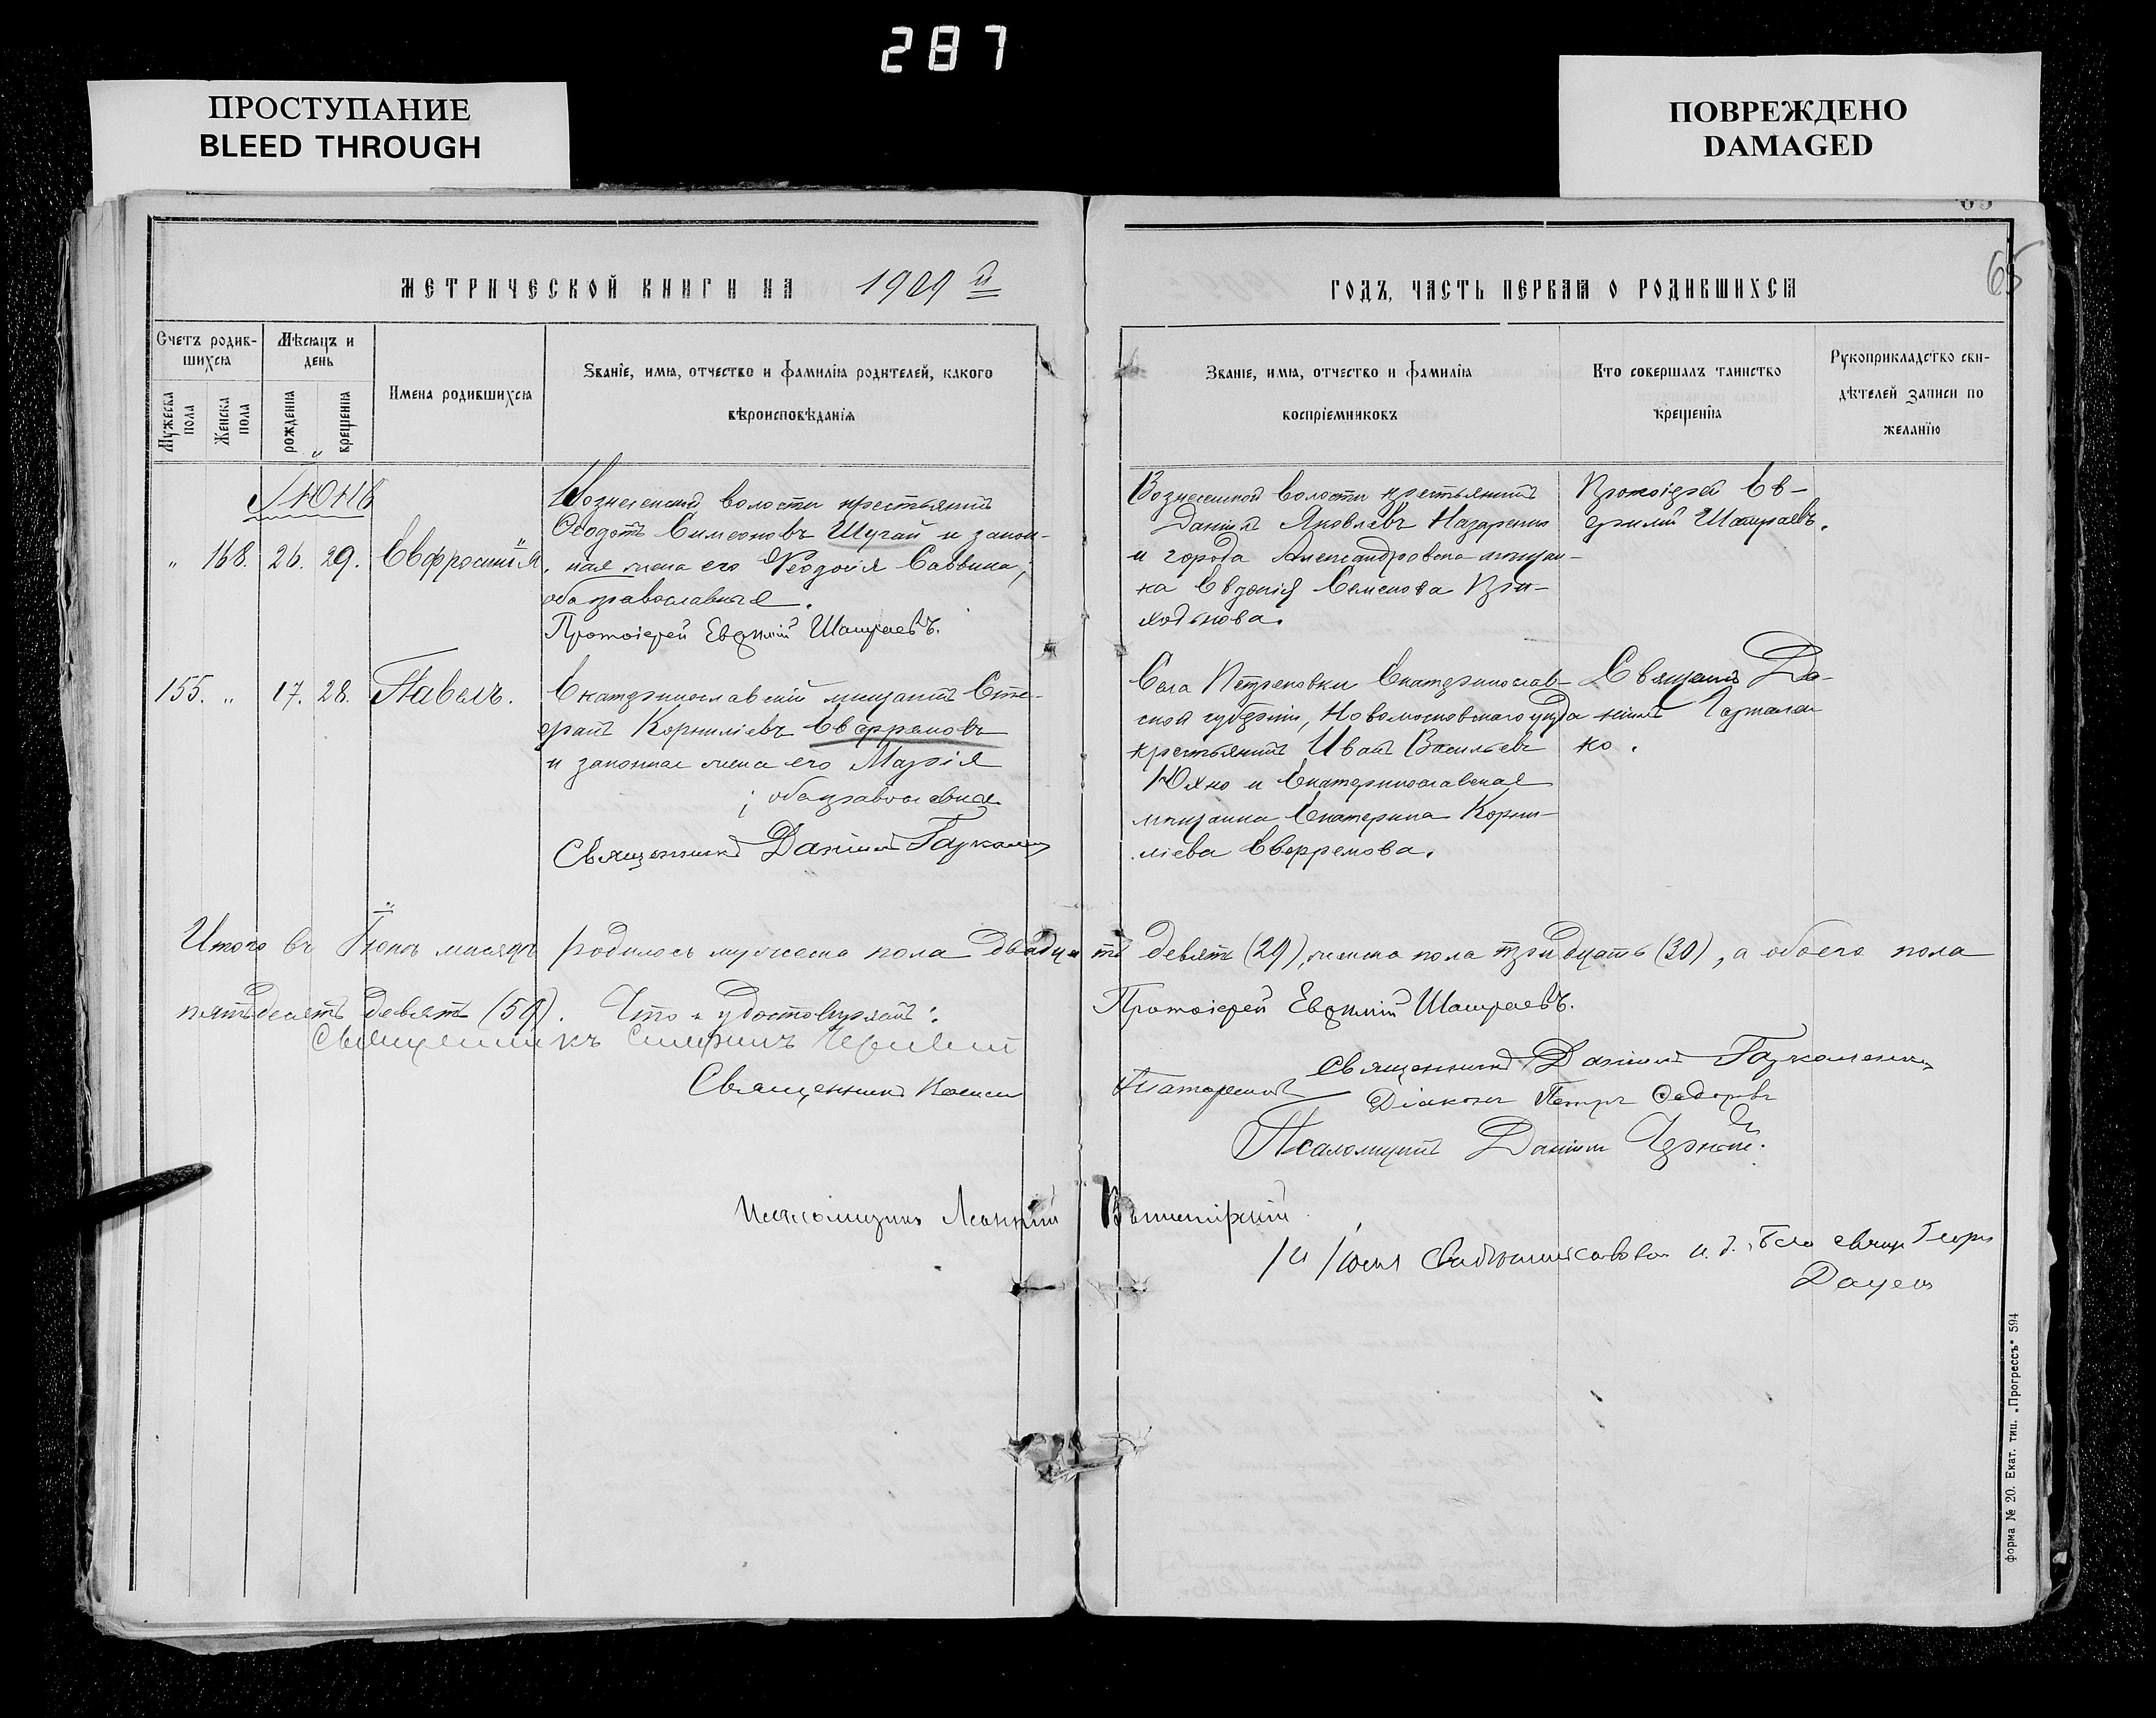 287
ПРОСТУПАНИЕ
BLEED THROUGH
ПОВРЕЖДЕНО
DAMAGED
65
МЕТРИЧЕСКОЙ КНИГИ НА 1909 й
ГОДЪ, ЧАСТЬ ПЕРВАЯ О РОДИВШИХСЯ
Счетъ родив-
шихся
Мужеска пола
Женска пола
Мѣсяцъ и
день
рожденія
крещенія
Имена родившихся
Званіе, имя, отчество и фамилія родителей, какого
вѣроисповѣданія
Званіе, имя, отчество и фамилія
воспріемниковъ
Кто совершалъ таинство
крещенія
Рукоприкладство сви-
дѣтелей записи по
желанію
Іюнь
Вознесенской волости крестьянинъ
Ѳеодотъ Симеоновъ Шугай и закон-
" 168. 26. 29. Евфросинія.
ная жена его Ѳеодосія Саввина,
оба православные.
Протоіерей Евѳимій Шашраевъ.
Вознесенской волости крестьянинъ
Даніилъ Яковлевъ Назаренко
и города Александровска мѣщан-
ка Евдокія Семенова При-
ходькова.
Протоіерей Ев-
фимій Шашраевъ.
155. " 17. 28. Павелъ.
Екатеринославскій мѣщанинъ Сте-
фанъ Корниліевъ Евфремовъ
и законная жена его Марія
; оба православные.
Священникъ Даніилъ
Села Петровки Екатеринослав-
ской губерніи, Новомосковскаго уѣзда
крестьянинъ Иванъ Васильевъ
Юхно и Екатеринославская
мѣщанка Екатерина Корни-
ліева Евфремова.
Священ. Да-
ніилъ
ко.
Итого въ Іюнѣ мѣсяцѣ родилось мужеска пола двадцать девять (29), женска пола тридцать (30), а обоего пола
пятьдесятъ девять (59). Что и удостовѣряемъ:
Протоіерей Евѳимій Шашраевъ.
Священникъ
Священникъ Даніилъ
Священникъ
Діаконъ Петръ Ѳедоровъ
Псаломщикъ Даніилъ Черный.
Псаломщикъ
Форма № 20. Екат. тип. „Прогрессъ" 594